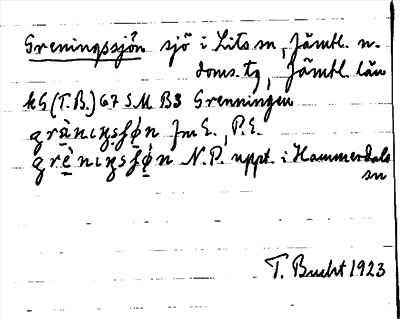 Greningssjön sjö i Lits sn, Jämtl. n.
doms. tg, Jämtl. län
kG (T.B.) 67 S.M B3 Grenningen
gràniŋsʃø̀n Jm E., P.E.
grèniŋsʃø̀n N.P. uppt. i Hammerdals
sn
T. Bucht 1923